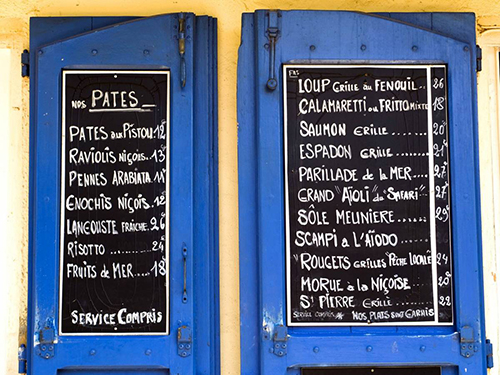 NOS PATES
PATES au PISTOU 12
RAVIOLIS NIÇOIS. 13
PENNES ARABIATA 11
GNOCHIS NIÇOIS. 12
LANGOUSTE FRAICHE. 26
RISOTTO ........ 24
FRUITS DE MER .... 18
SERVICE COMPRIS
LOUP GRILLE au FENOUIL. 26
CALAMARETTI ou FRITTO MIXTO 18
SAUMON GRILLE ....... 20
ESPADON GRILLE ...... 21
PARILLADE DE LA MER. 27
GRAND "AÏOLI" du "SAFARI" 27
SÔLE MEUNIERE ..... 29
SCAMPI A L'AÏODO ......
"ROUGETS GRILLES "PÊCHE LOCALE 24
MORUE A LA NIÇOISE 20
ST PIERRE GRILLE ....... 22
SERVICE COMPRIS NOS PLATS SONT GARNIS